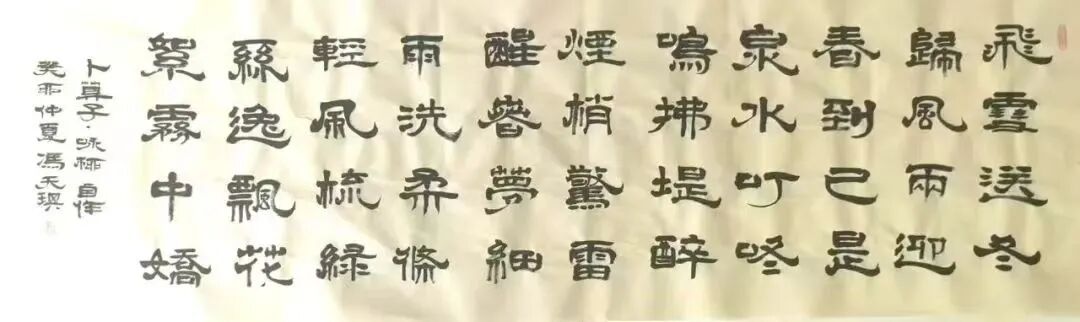 飛雪送冬
歸風雨迎
春到已是
泉水叮咚
鳴拂堤醉
煙梢驚雷
醒夢細
雨洗柔條
輕風梳綠
絲逸飄花
絮霧中嬌
卜算子·咏柳 自作
癸卯仲夏馮天